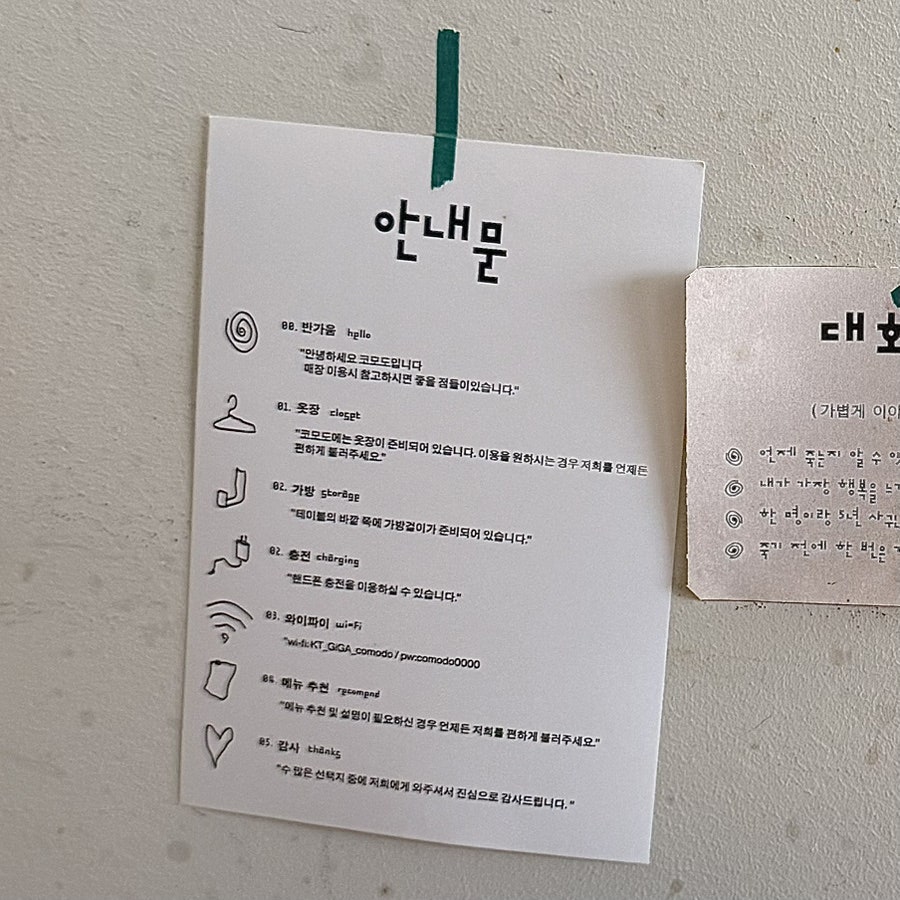 안내물
00. 반가움 hello
"안녕하세요 코모도입니다
매장 이용시 참고하시면 좋을 점들이있습니다."
01. 옷장 closet
"코모도에는 옷장이 준비되어 있습니다. 이용을 원하시는 경우 저희를 언제든
편하게 불러주세요."
02. 가방 storage
"테이블의 바깥 쪽에 가방걸이가 준비되어 있습니다."
02. 충전 charging
"핸드폰 충전을 이용하실 수 있습니다."
03. 와이파이 wi-Fi
"wi-fi:KT_GiGA_comodo / pw:comodo0000
04. 메뉴 추천 recomend
"메뉴 추천 및 설명이 필요하신 경우 언제든 저희를 편하게 불러주세요."
05. 감사 thanks
"수 많은 선택지 중에 저희에게 와주셔서 진심으로 감사드립니다. "
대
(가볍게
언제 죽는지 알 수
내가 가장 행복을
한 명이랑 5년
죽기 전에 한 번은